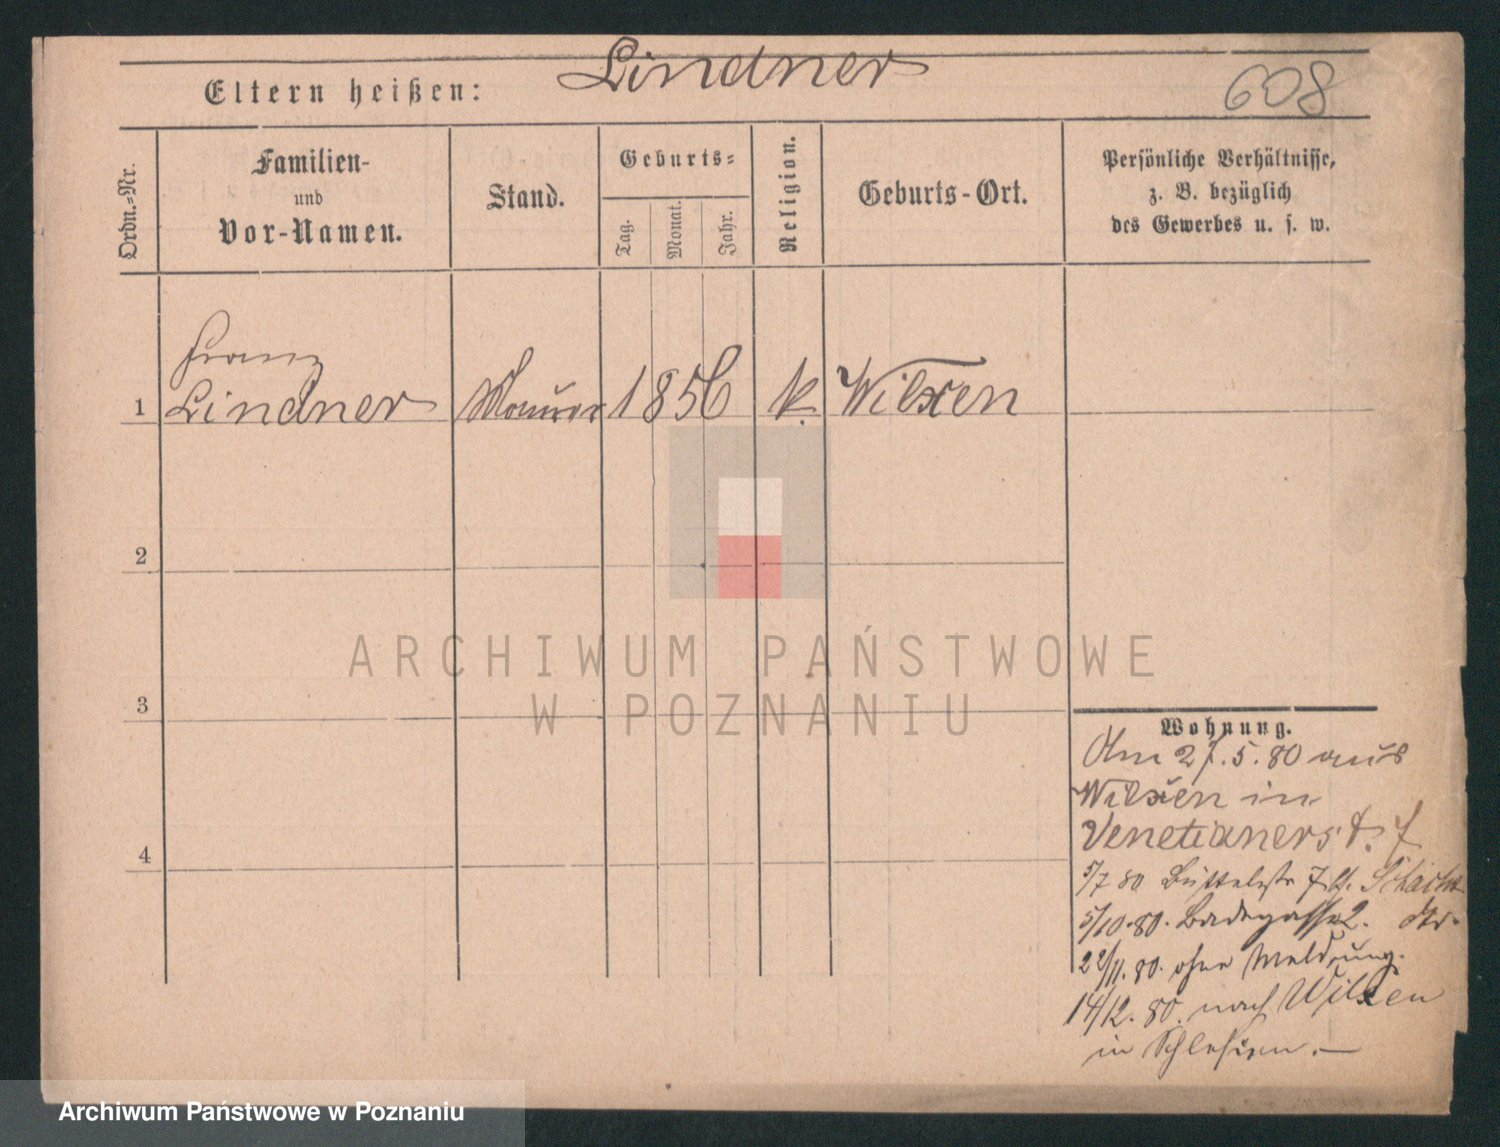 Eltern heißen: Lindner
608
Ordn.-Nr.
Familien-
und
Vor-Namen.
Stand.
Geburts-
Tag.
Monat.
Jahr.
Religion.
Geburts-Ort.
Persönliche Verhältnisse,
z. B. bezüglich
des Gewerbes u. s. w.
Franz
1 Lindner Maurer 1856 k. Wilxen
2
ARCHIWUM PAŃSTWOWE
W POZNANIU
3
Wohnung.
Am 27.5.80 aus
Wilxen in
Venetianerst. 7
5/7 80 Büttelstr 7
5/10.80. Badegasse 2.
4
22/11.80. ohne Meldung.
14/12.80. nach Wilxen
in Schlesien.—
Archiwum Państwowe w Poznaniu